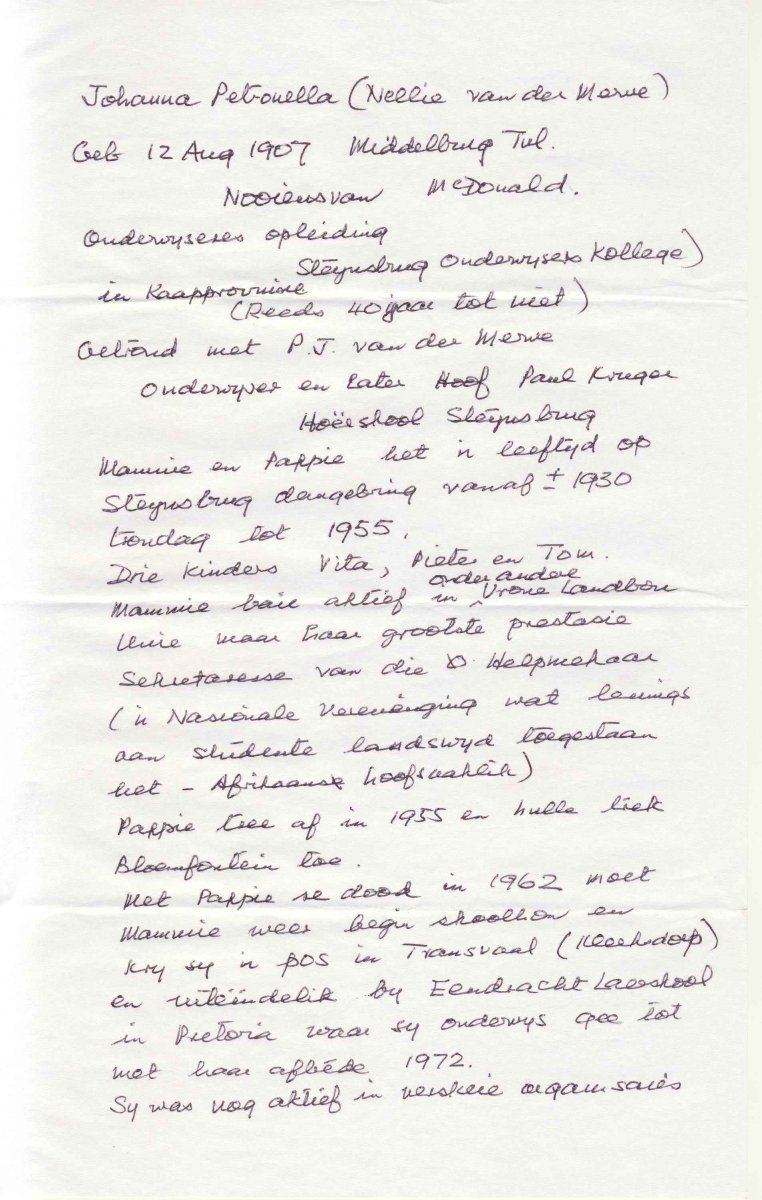 Johanna Petronella (Nellie van der Merwe)
Geb 12 Aug 1907 Middelburg Tvl.
Nooiensvan McDonald.
Onderwyseres opleiding
Steynsburg Onderwysers Kollege)
in Kaapprovinsie
(Reeds 40 jaar tot niet)
Getroud met P.J. van der Merwe
Onderwyser en Later Hoof Paul Kruger
Hoërskool Steynsburg
Mammie en Pappie het 'n leeftyd op
Steynsburg daargebring vanaf ± 1930
trondag tot 1955.
Drie Kinders Vita, Pieter en Tom.
Mammie baie aktief in onder andere Vroue Landbou
Unie maar haar grootste prestasie
Sekretaresse van die Helpmekaar
('n Nasionale Vereniging wat lenings
aan studente landswyd toegestaan
het - Afrikaans hoofsaaklik)
Pappie tree af in 1955 en hulle trek
Bloemfontein toe.
Met Pappie se dood in 1962 moet
Mammie weer begin skoolhou en
kry sy 'n pos in Transvaal (Klerksdorp)
en uiteindelik by Eendracht Laerskool
in Pretoria waar sy onderwys gee tot
met haar aftrede 1972.
Sy was nog aktief in verskeie organisasies